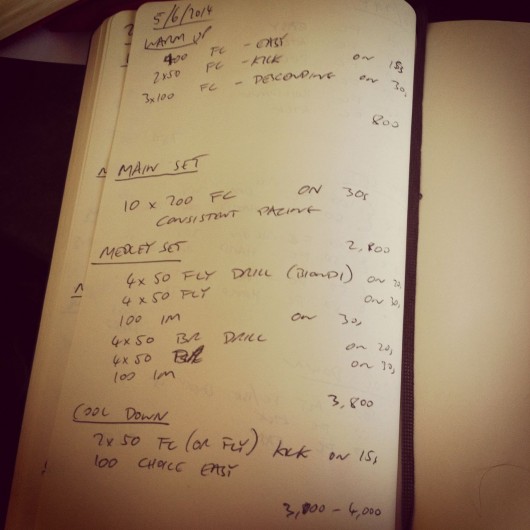 5/6/2014
WARM UP
400 FC - EASY
2x50 FC - KICK ON 15s
3x100 FC - DESCENDING ON 30s
800
MAIN SET
10 x 200 FC ON 30s
CONSISTENT PACING
2,800
MEDLEY SET
4x50 FLY DRILL (BIONDI) ON
4x50 FLY ON
100 IM ON 30s
4x50 BR DRILL ON 20s
4x50 BR ON
100 IM
3,800
COOL DOWN
2x50 FC (OR FLY) KICK ON 15s
100 CHOICE EASY
- 4,000